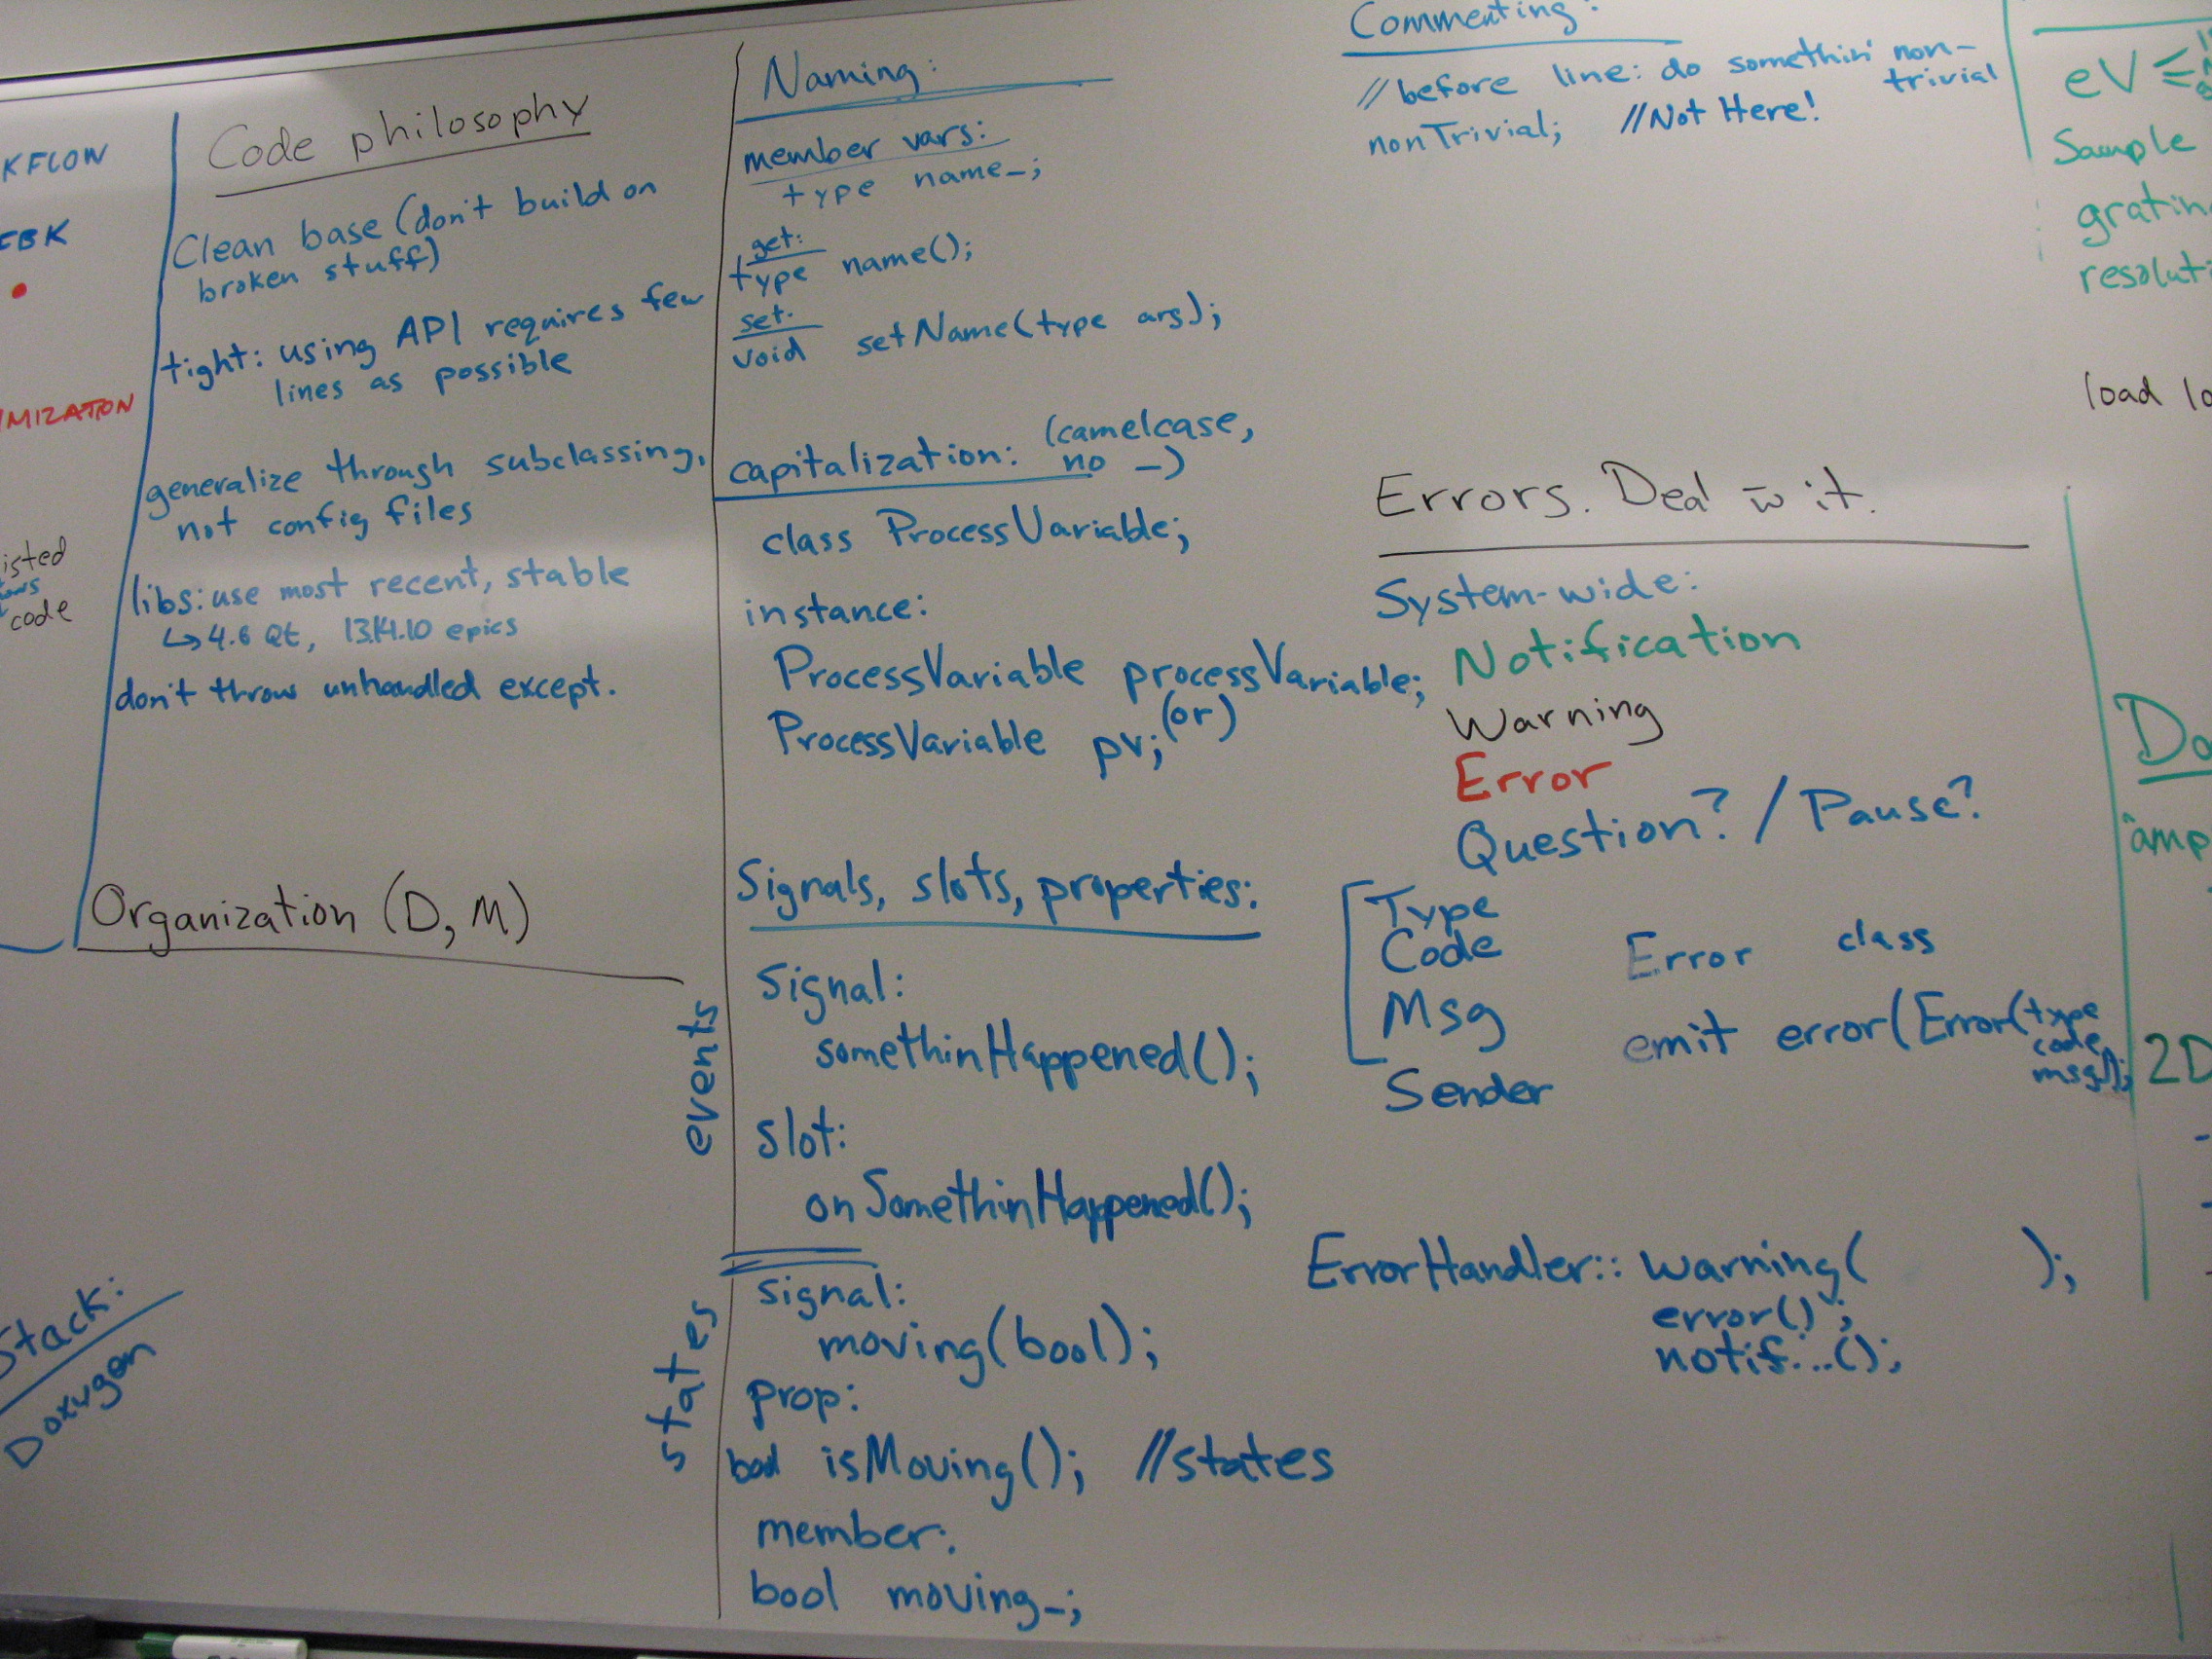 KFLOW
FBK
MIZATION
isted
code
Stack:
Doxygen
Code philosophy
Clean base (don't build on
broken stuff)
tight: using API requires few
lines as possible
generalize through subclassing,
not config files
libs: use most recent, stable
↳ 4.6 Qt, 13.14.10 epics
don't throw unhandled except.
Organization (D, M)
Naming:
member vars:
type name_;
get:
type name();
set:
void setName(type arg);
capitalization: (camelcase,
no _)
class ProcessVariable;
instance:
ProcessVariable processVariable;
(or)
ProcessVariable pv;
Signals, slots, properties:
events
signal:
somethinHappened();
slot:
onSomethinHappened();
states
signal:
moving(bool);
prop:
bool isMoving(); //states
member:
bool moving_;
Commenting:
//before line: do somethin' non-
trivial
nonTrivial; //Not Here!
Errors. Deal w̄ it.
System-wide:
Notification
Warning
Error
Question? / Pause?
Type
Code
Msg
Sender
Error class
emit error(Error(type
code,
msg));
ErrorHandler:: warning( );
error();
notif...();
eV ≤
Sample
gratin
resoluti
load lo
Da
amp
2D